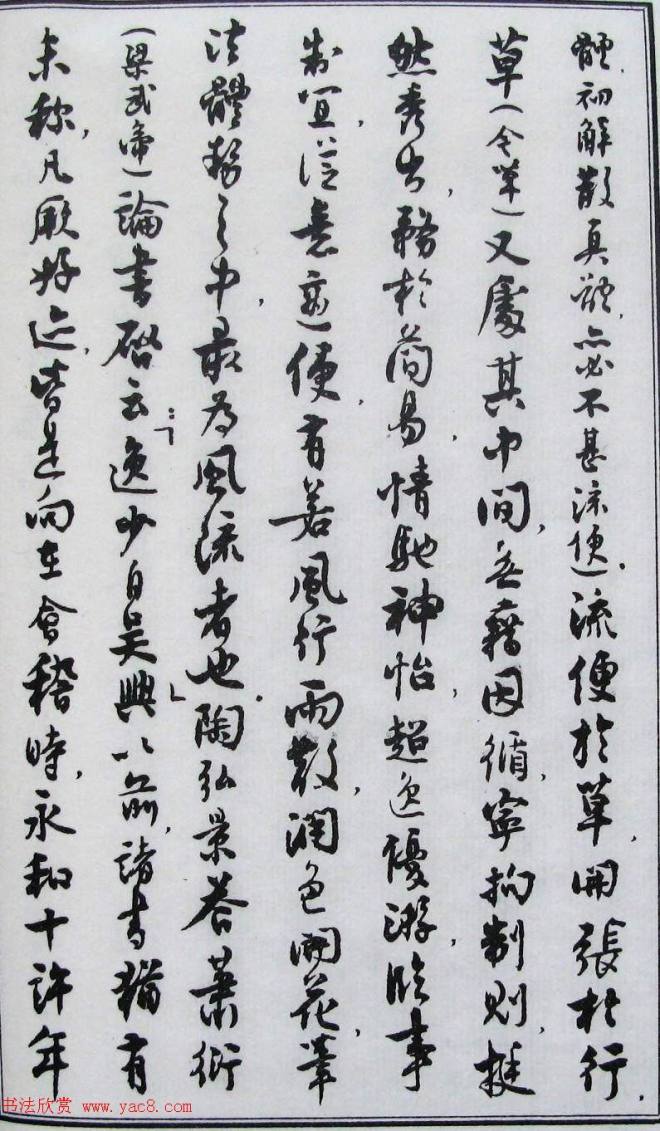 體，初解散真體，亦必不甚流便）。流便於草，開張於行，
草（今草）又處其中間，無藉因循，寧拘制則，挺
然秀出，務於簡易，情馳神怡，超逸優游，臨事
制宜，從意適便，有若風行雨散，潤色開花，筆
法體勢之中，最為風流者也」。陶弘景答蕭衍
（梁武帝）論書啓云：「逸少自吴興以前，諸書猶有
未称，凡厥好迹，皆是向在會稽時，永和十許年
书法欣赏 www.yac8.com